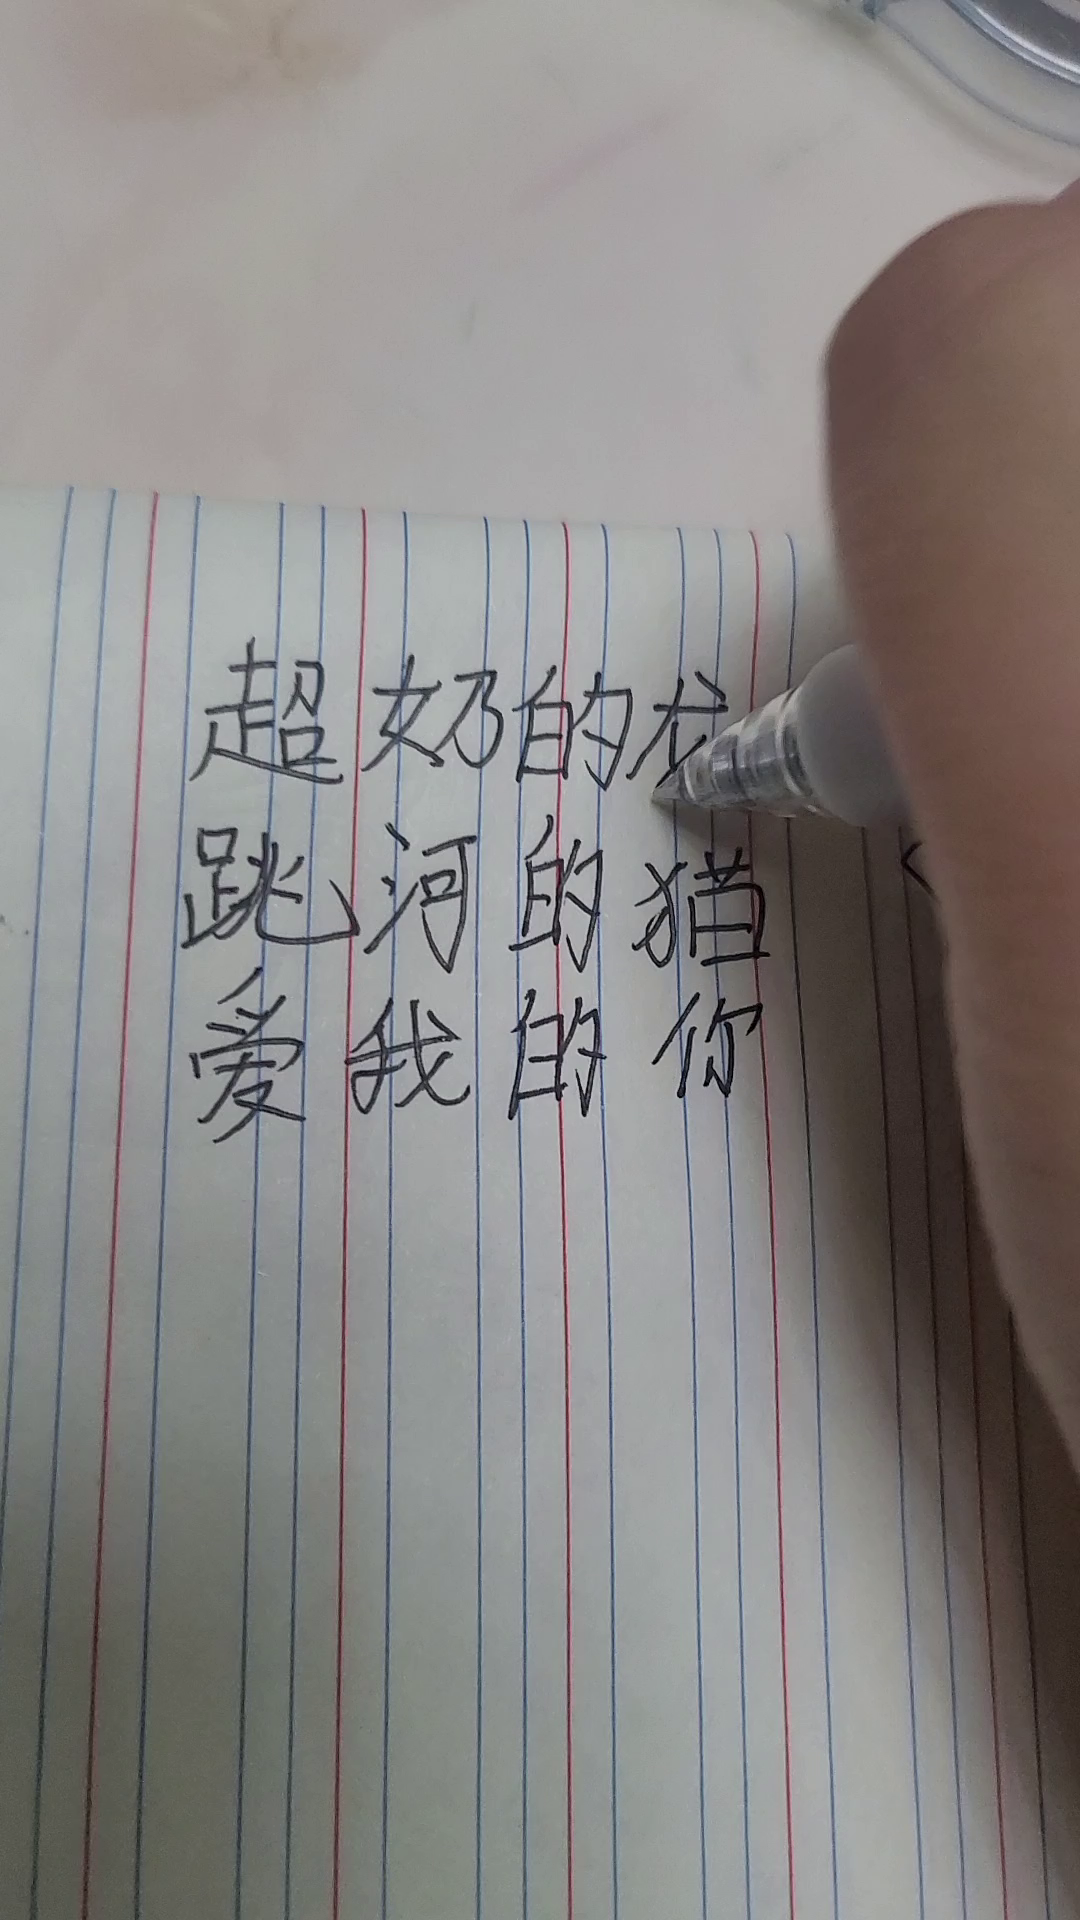 超奶的龙
跳河的猫
爱我的你